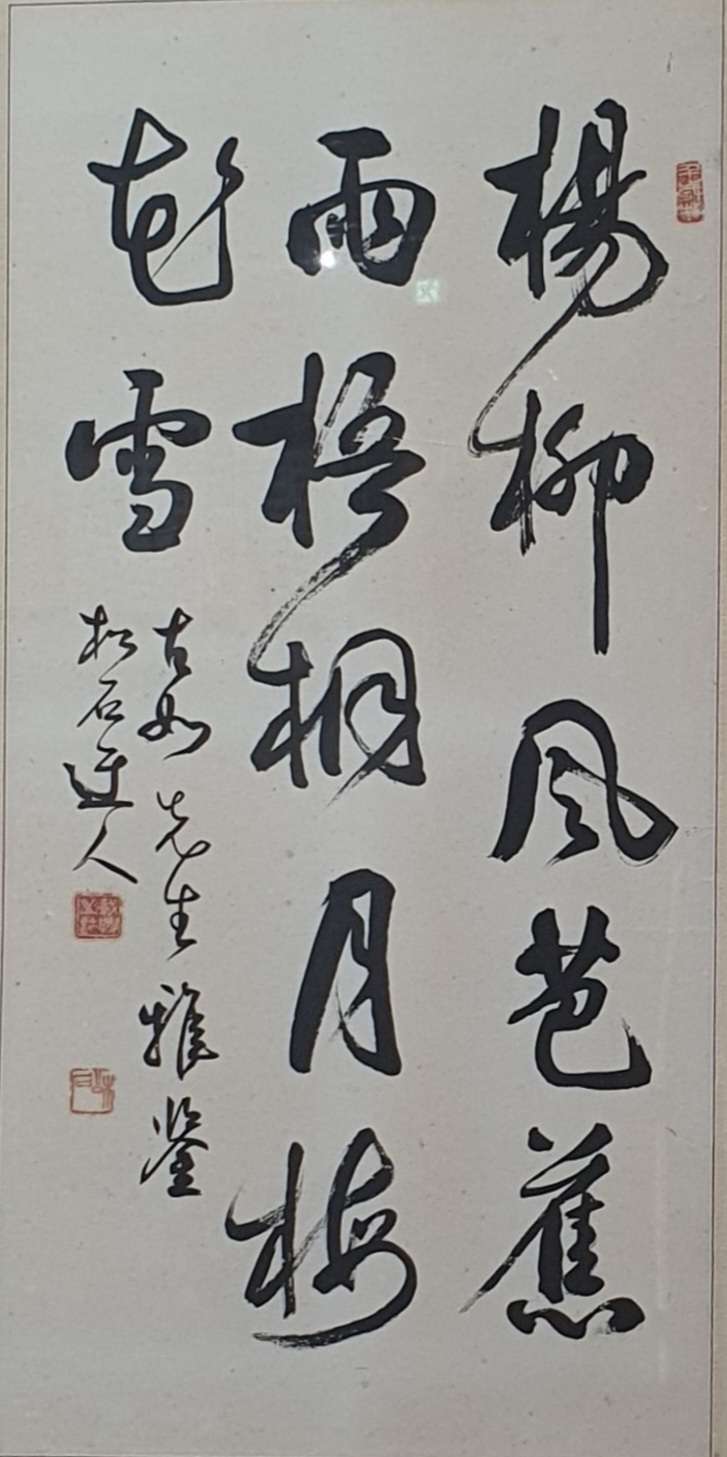 楊柳風芭蕉
雨梧桐月梅
花雪
古如先生雅鉴
松石道人